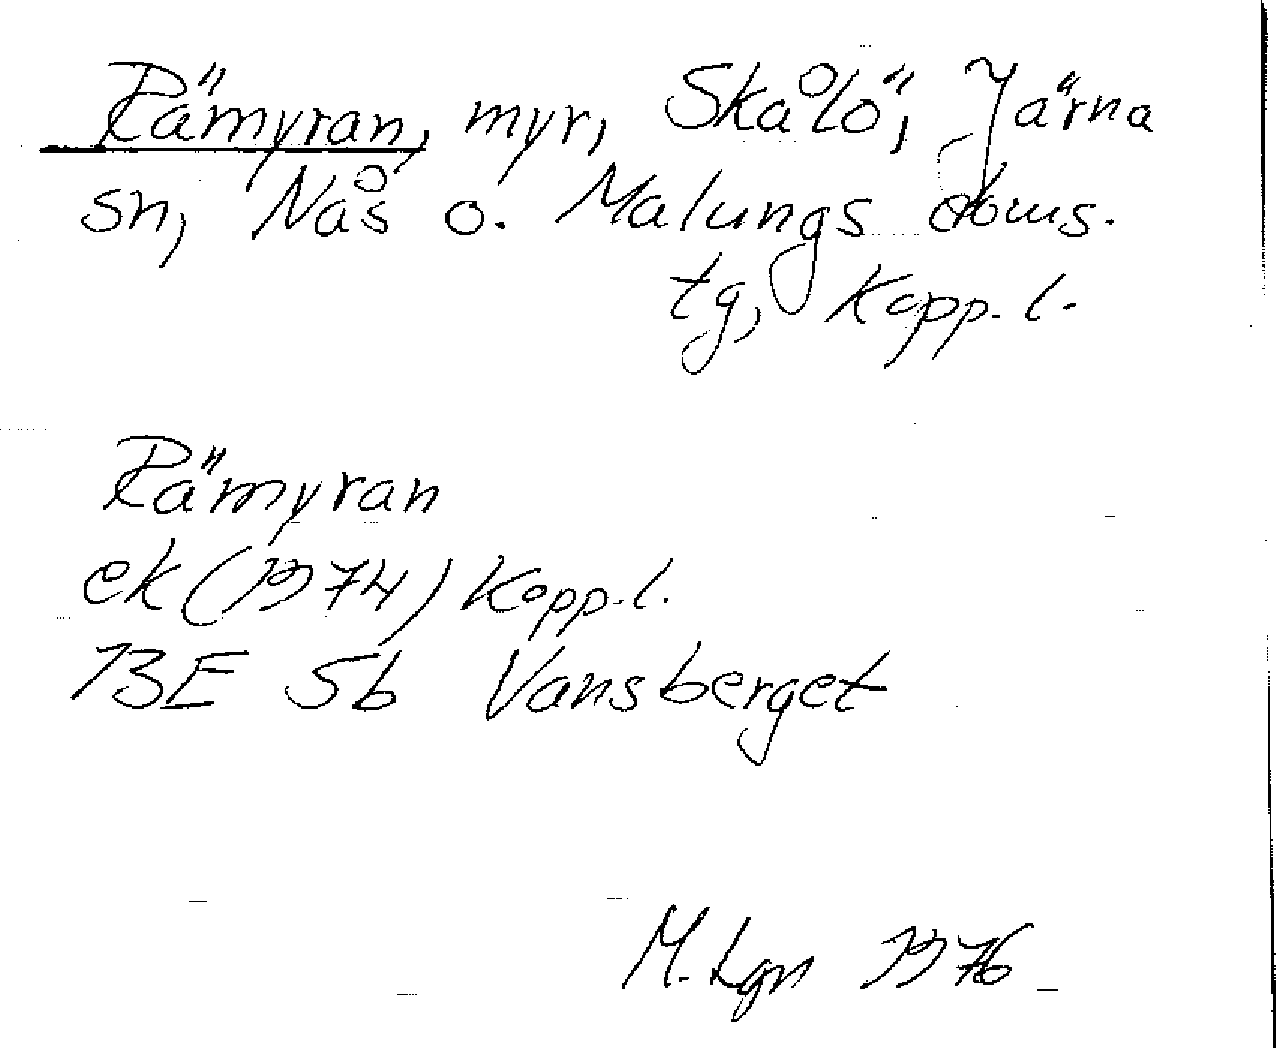 Rämyran, myr, Skålö, Järna
sn, Nås o. Malungs doms.
tg, Kopp. l.
Rämyran
ek (1974) Kopp. l.
13E 5b Vansberget
M. Lgn 1976